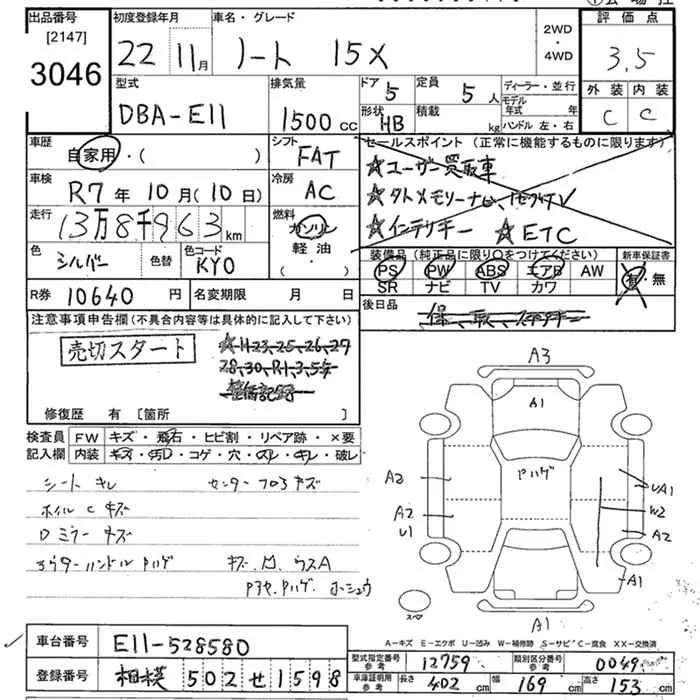 出品番号 初度登録年月 車名・グレード 2WD・4WD 評価点
[2147]
3046 22 11月 ノート 15X 3.5
外装 内装
C C
型式 排気量 ドア 定員 ディーラー・並行
DBA-E11 1500cc 5 5人 モデル年式 年
形状 積載 kg ハンドル 左・右
HB
車歴 シフト セールスポイント (正常に機能するものに限ります)
自家用・( ) FAT ☆ユーザー買取車
車検 冷房 ☆メモリーナビ
R7年10月(10日) AC ☆インテリキー ☆ETC
走行 燃料
13万8千963km ガソリン
軽油
・( )
色 色替 色コード 装備品 (純正品に限り○をつけてください) 新車保証書
シルバー KY0 PS PW ABS エアB AW 有・無
SR ナビ TV カワ
R券 10640円 名変期限 月 日 後日品
注意事項申告欄(不具合内容等は具体的に記入して下さい) 保、取、
売切スタート ☆H23,25,26,27
28,30,R1,3,5年
整備記録
修復歴 有 [箇所 ]
検査員 FW キズ・飛石・ヒビ割・リペア跡・×要
記入欄 内装 キズ・汚レ・コゲ・穴・スレ・キレ・破レ
シート キレ センターフロアキズ
ホイルCキズ
Dミラーキズ
アウターハンドルPハゲ キズ、凹、ウスA
Pハゲ、ホシュウ
A3
A1
Pハゲ
A2
UA1
W2
A2
U1
A2
A1
スペア
A1
A-キズ E-エクボ U-凹み W-補修跡 S-サビ C-腐食 XX-交換済
車台番号 E11-528580
登録番号 相模 502 せ 1598
型式指定番号 参考 12759 類別区分番号 参考 0049
車庫証明用 参考 長さ 402cm 幅 169cm 高さ 153cm